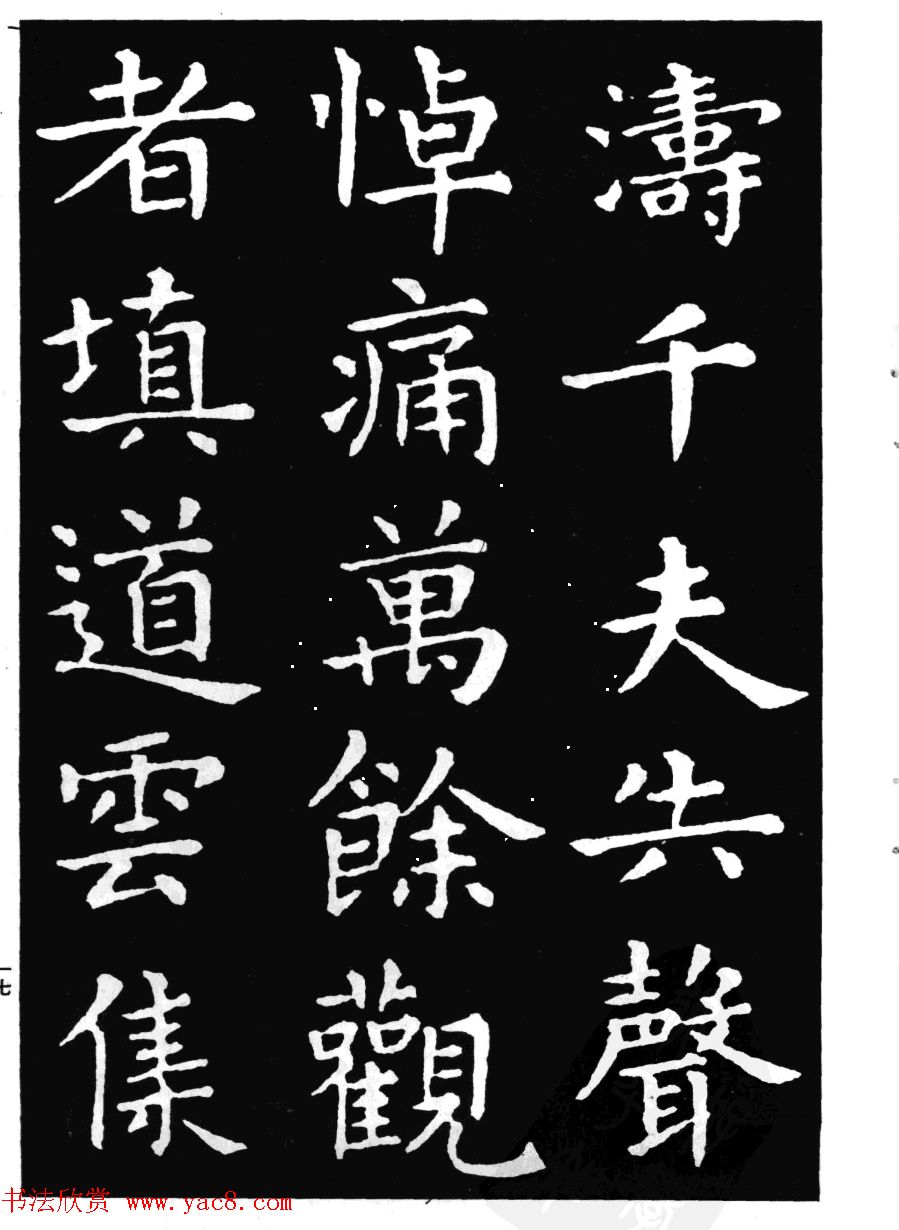 濤千夫失聲
悼痛萬餘觀
者填道雲集
十七
书法欣赏 www.yac8.com